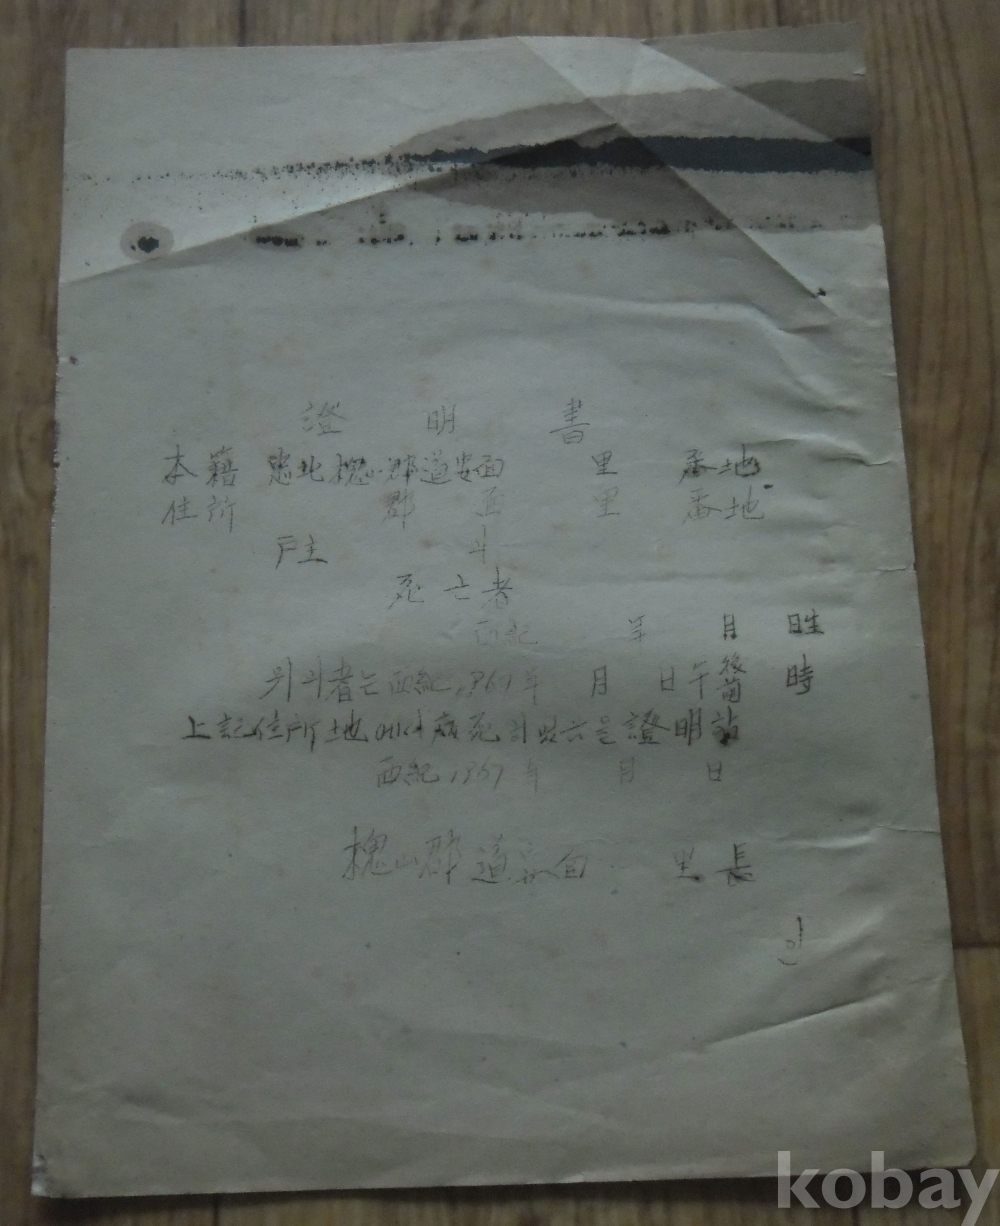 證 明 書
本籍 忠北槐山郡道安面 里 番地
住所 郡 面 里 番地
戶主
死亡者
西紀 年 月 日生
위 者는 西紀 1967年 月 日 午後前 時
上記住所地에서 病死 하였음을 證明함
西紀 1967年 月 日
槐山郡 道安面 里長
인
kobay